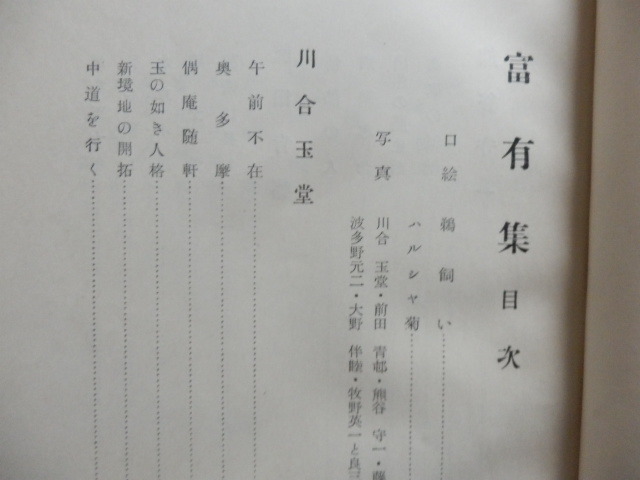 富有集 目次
口絵 鵜飼い
ハルシャ菊
写真 川合 玉堂・前田 青邨・熊谷 守一・
波多野元二・大野 伴睦・牧野英一と良三
川合玉堂
午前不在
奥多摩
偶庵随軒
玉の如き人格
新境地の開拓
中道を行く